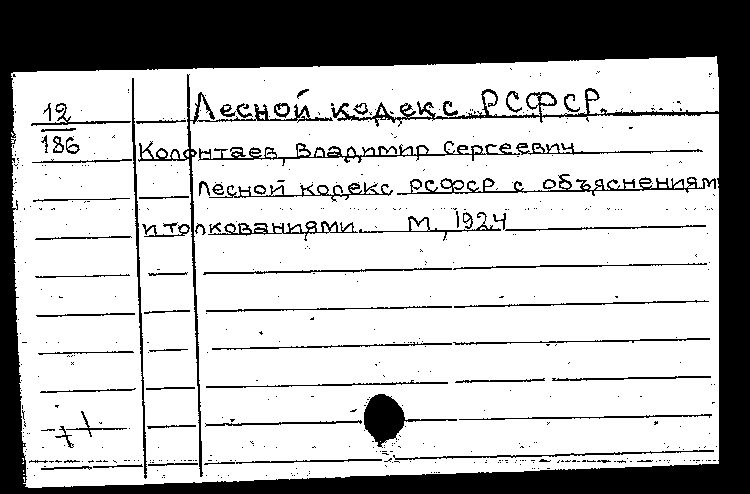 Лесной кодекс РСФСР.
12
186
Колонтаев, Владимир Сергеевич
Лесной кодекс РСФСР с объяснениям
и толкованиями. М., 1924
+ 1